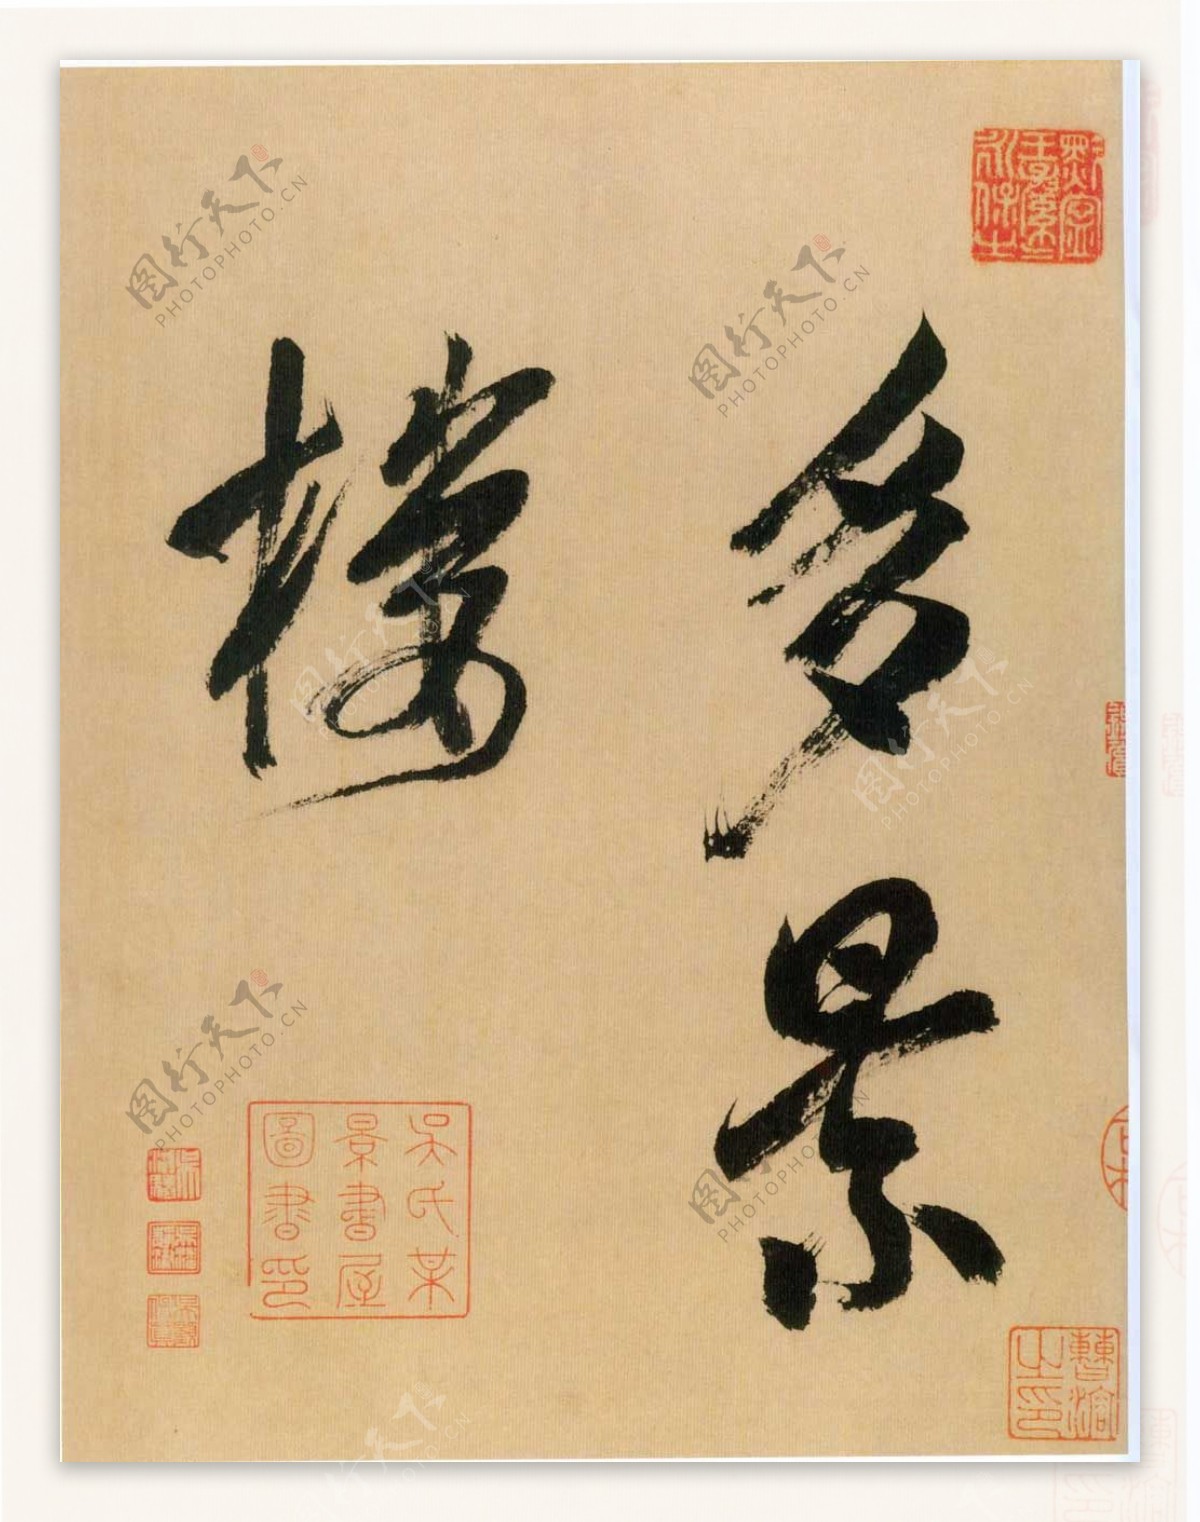 多景
楼
吴氏某
景書屋
圖書印
曹溶
之印
图行天下
PHOTOPHOTO.CN
图行天下
PHOTOPHOTO.CN
图行天下
PHOTOPHOTO.CN
图行天下
PHOTOPHOTO.CN
图行天下
PHOTOPHOTO.CN
图行天下
PHOTOPHOTO.CN
图行天下
PHOTOPHOTO.CN